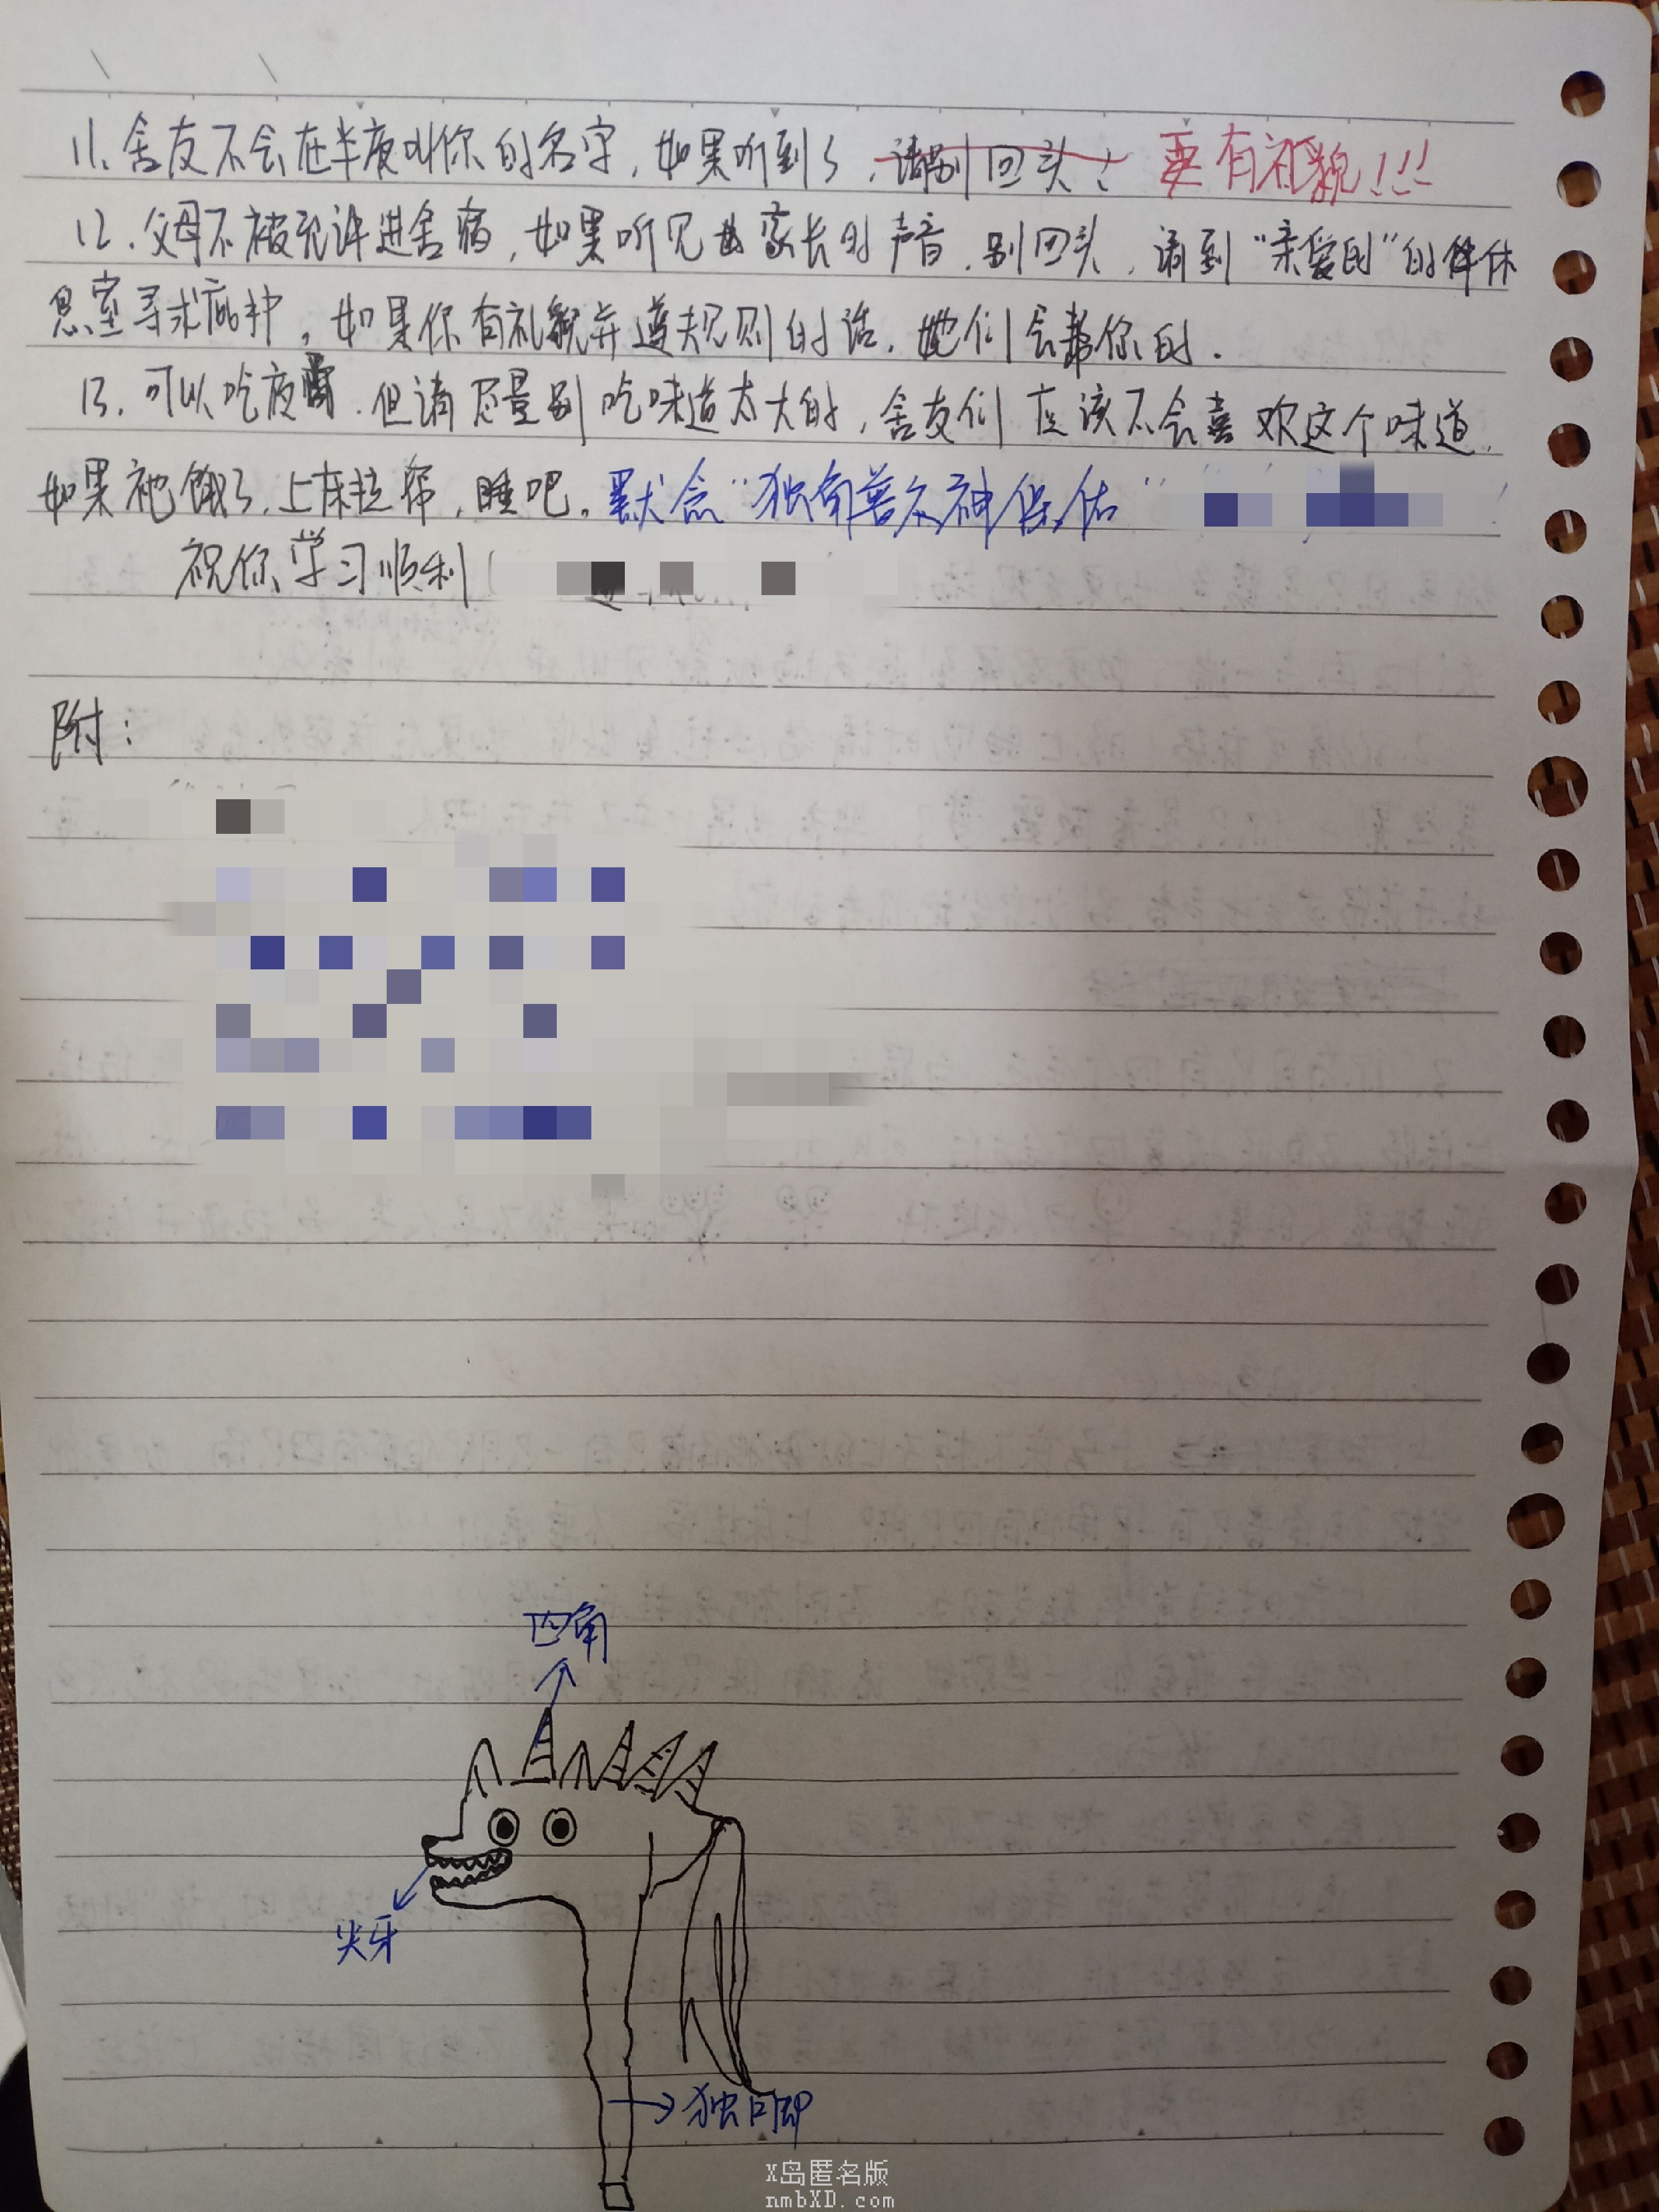 11. 舍友不会在半夜叫你的名字，如果听到了，请别回头！ 要有礼貌！！！
12. 父母不被允许进舍，如果听见家长的声音，别回头，请到“亲爱的”的休
息室寻求庇护，如果你有礼貌并遵规则的话，她们会帮你的.
13. 可以吃夜宵，但请尽量别吃味道太大的，舍友们应该不会喜欢这个味道.
如果祂饿了，上床拉帘，睡吧。默念“独角兽大神保佑”
祝你学习顺利！
附：
四角
尖牙
独脚
X岛匿名版
nmbXD.com